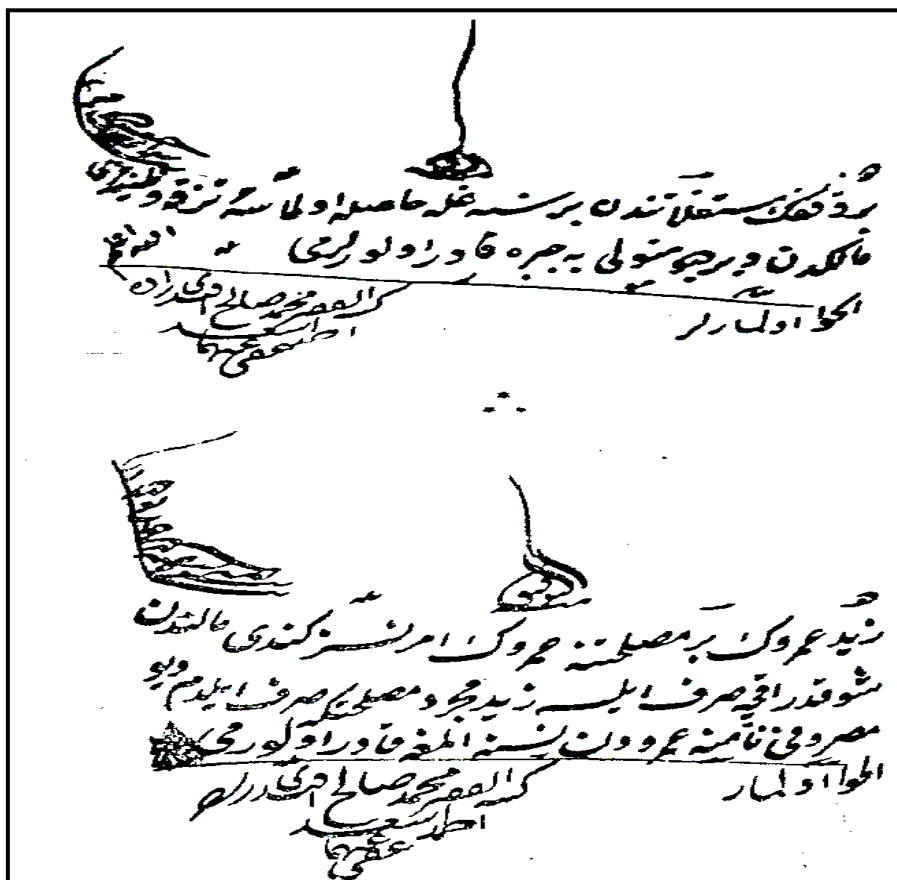 بر وقفك مستغلاتندن بر سنه غله حاصله اولماسه مرتزقه وظيفه‌لرى
مالكدن وير ديو متولى‌يه جبره قادر اولورلرمى
الجواب اولمازلر
كتبه الفقير محمد صالح افندى‌زاده
احمد اسعد
عفى عنهما
زيد عمروك بر مصلحتنه عمروك امرنسز كندى مالندن
شو قدر اقچه صرف ايلسه زيد مجرد مصلحتكه صرف ايلدم ديو
مصروفى نامنه عمرودن نسنه المغه قادر اولورمى
الجواب اولماز
كتبه الفقير محمد صالح افندى‌زاده
احمد اسعد
عفى عنهما